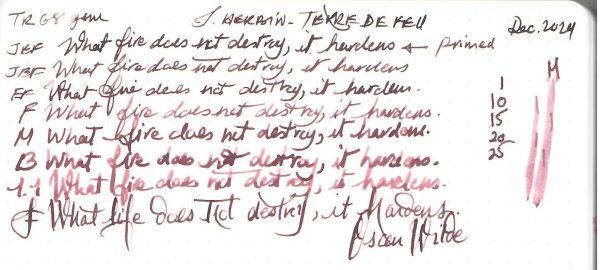 TR 68 gsm J. HERBIN - TERRE DE FEU Dec. 2024
JEF What fire does not destroy, it hardens ← primed
JBF What fire does not destroy, it hardens
EF What fire does not destroy, it hardens.
F What fire does not destroy, it hardens.
M What fire does not destroy, it hardens.
B What fire does not destroy, it hardens.
1.1 What fire does not destroy, it hardens.
What life does not destroy, it hardens.
Oscar Wilde
M
1
10
15
20
25